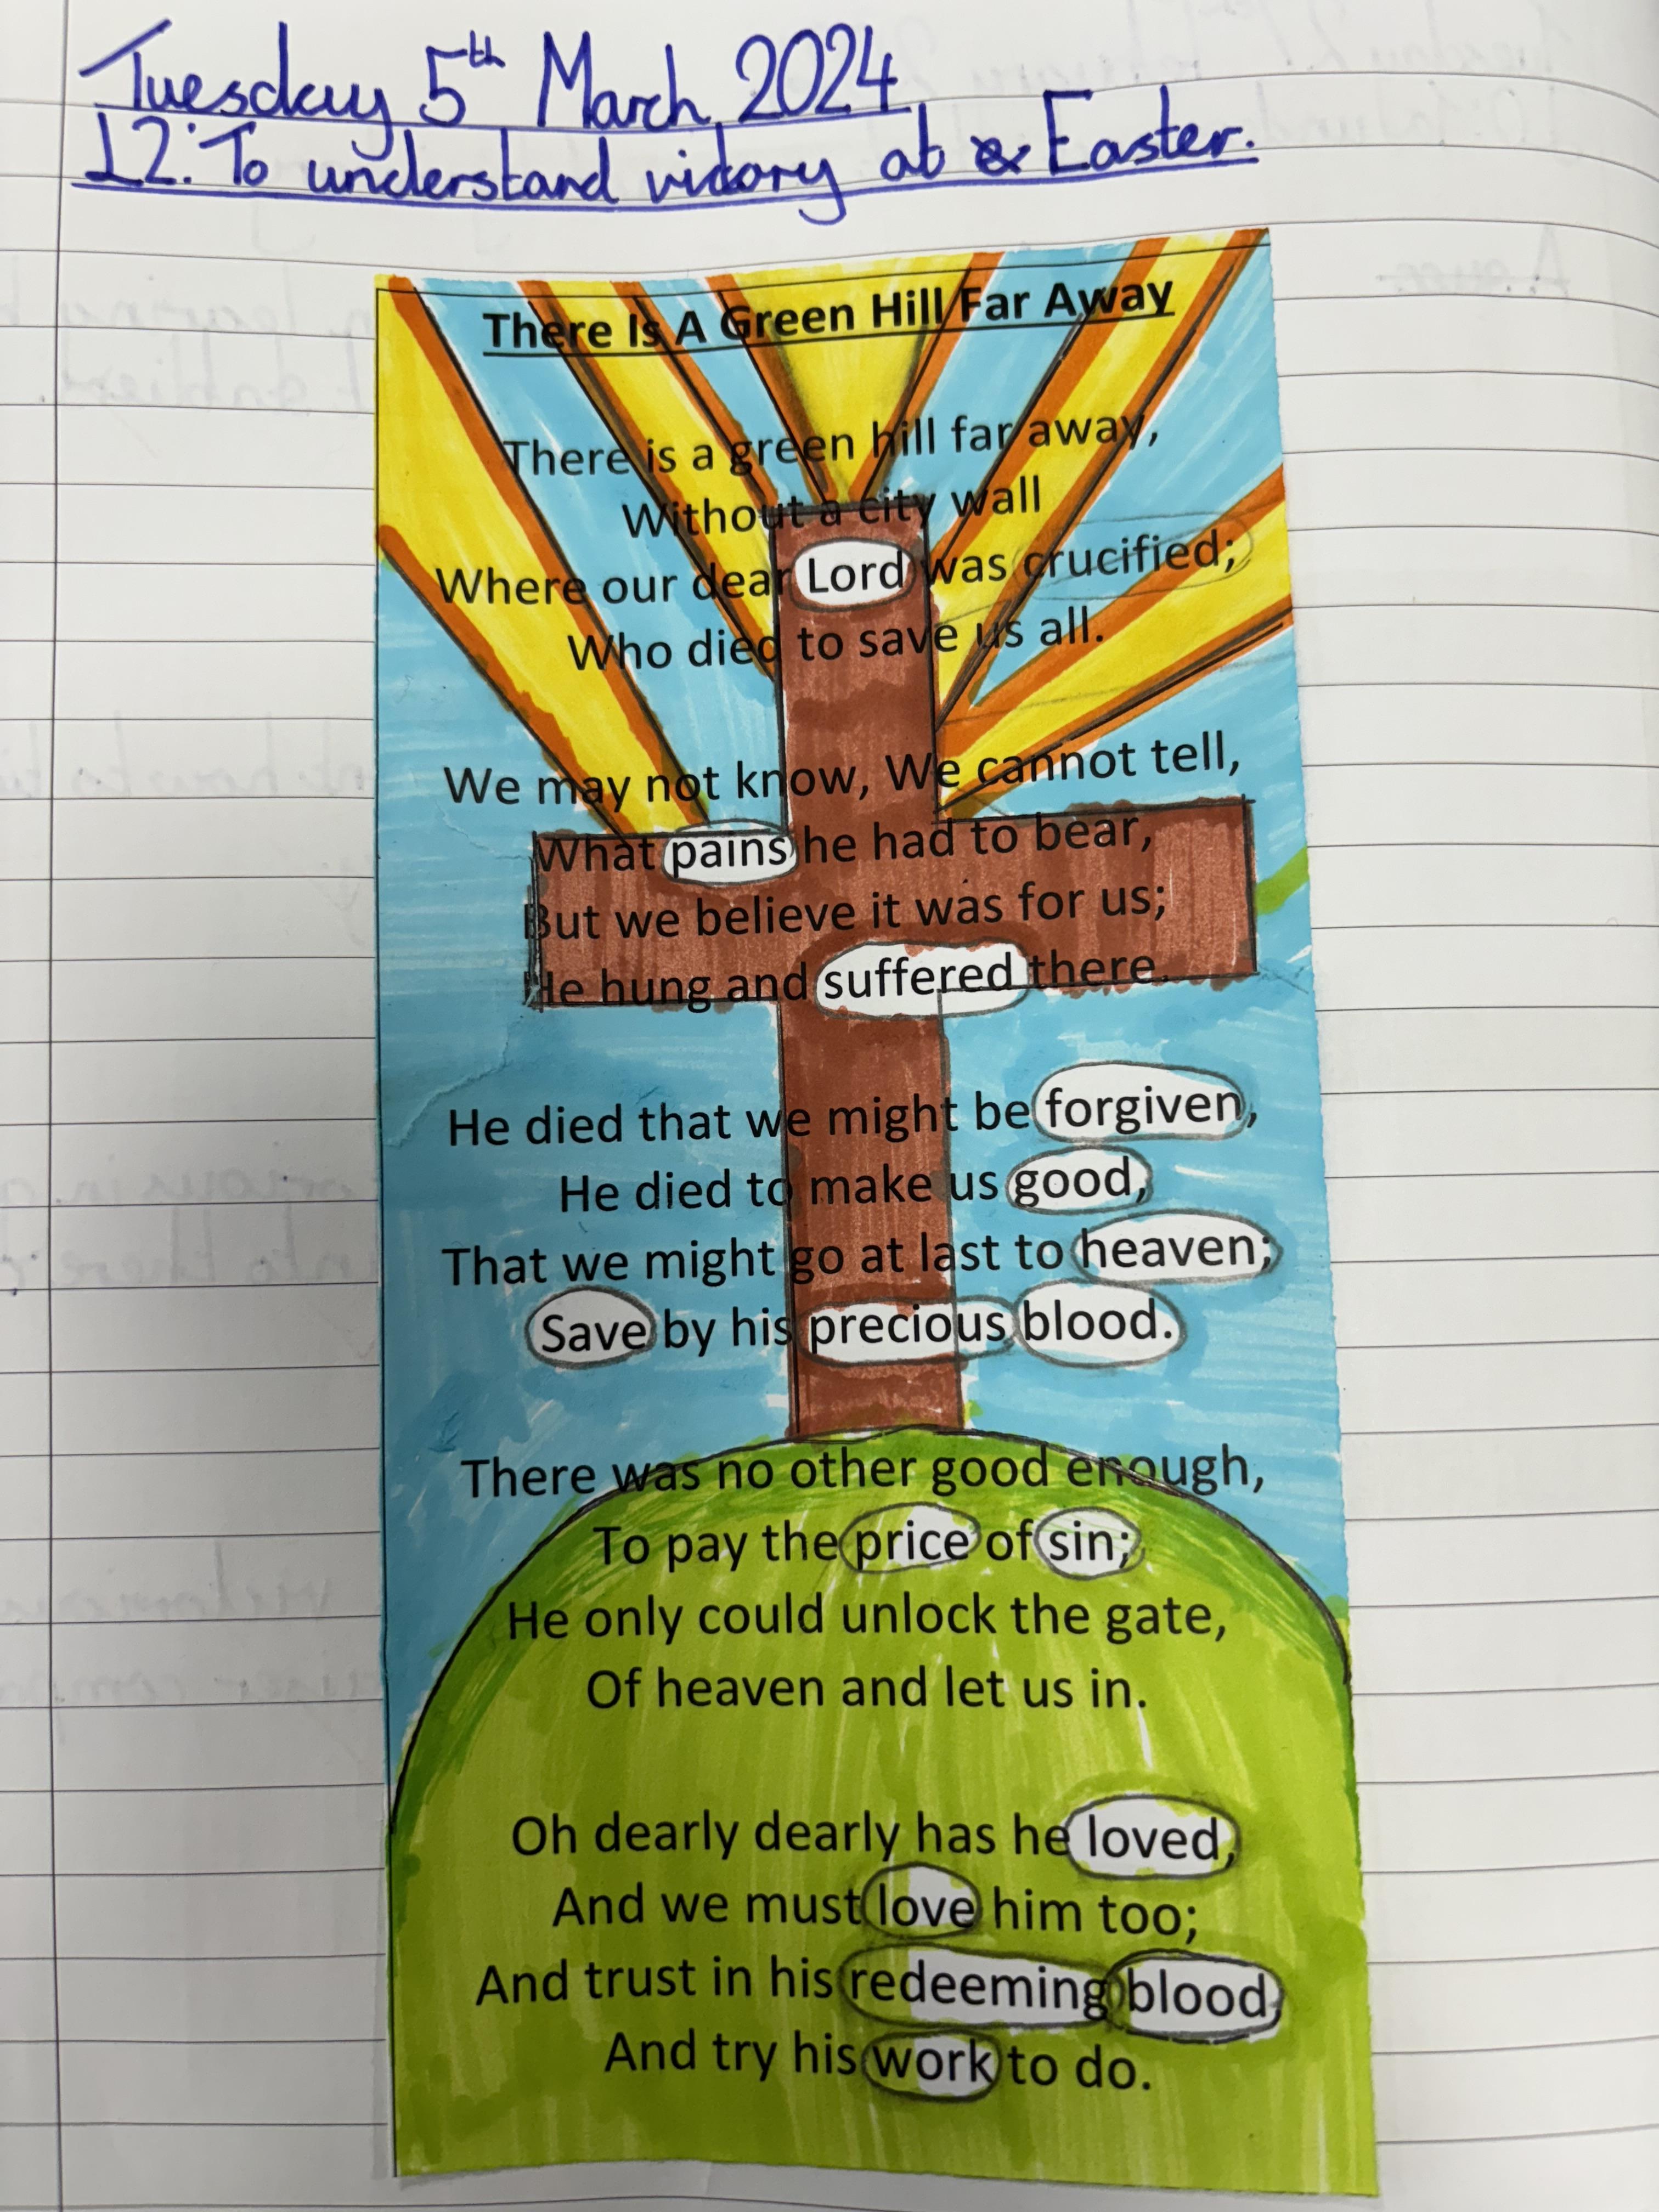 Tuesday 5th March 2024
L2: To understand victory at Easter.
There Is A Green Hill Far Away
There is a green hill far away,
Without a city wall
Where our dear Lord was crucified;
Who died to save us all.
We may not know, We cannot tell,
What pains he had to bear,
But we believe it was for us;
He hung and suffered there.
He died that we might be forgiven,
He died to make us good,
That we might go at last to heaven;
Save by his precious blood.
There was no other good enough,
To pay the price of sin;
He only could unlock the gate,
Of heaven and let us in.
Oh dearly dearly has he loved,
And we must love him too;
And trust in his redeeming blood,
And try his work to do.